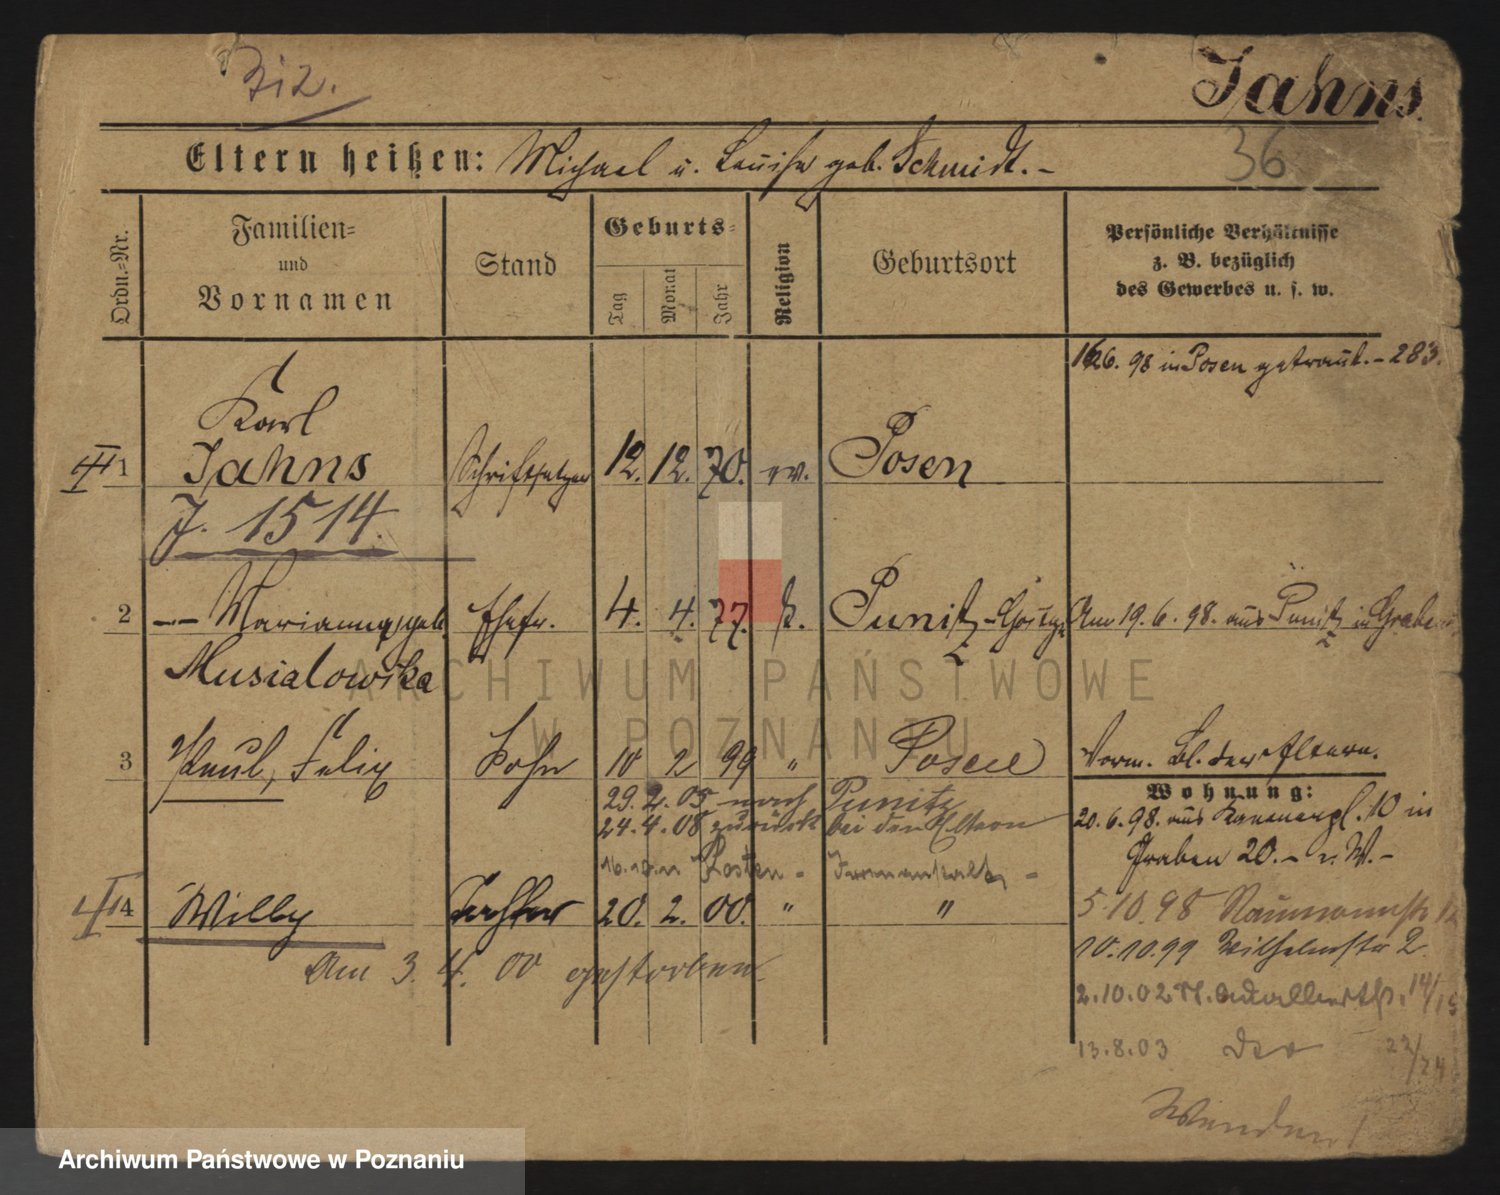 Jahns.
36
Eltern heißen: Michael u. Louise geb. Schmidt. -
Ordn.-Nr.
Familien- und Vornamen
Stand
Geburts-
Tag
Monat
Jahr
Religion
Geburtsort
Persönliche Verhältnisse
z. B. bezüglich
des Gewerbes u. s. w.
98 in Posen getraut. - 283.
Karl
1 Jahns Schriftsetzer 12. 12. 70. ev. Posen
J. 1514.
2 -- Marianna geb. Ehefr. 4. 4. 77. k. Punitz Am 19. 6. 98. aus Punitz in Graben
Musialowska
3 Paul, Felix Sohn 10 2 99 " Posen
Vorm. Bl. der Eltern.
29. 2. 05 nach Punitz
24. 4. 08 zurück bei den Eltern
Kosten - Irrenanstalt -
4 Willy Tochter 20. 2. 00. " "
Am 3. 4. 00 gestorben.
Wohnung:
20. 6. 98. aus Kanonenpl. 10 in
Graben 20. - u. W. -
5. 10. 98 Naumannstr.
10. 10. 99 Wilhelmstr 2.
2. 10. 02 Adalbertstr. 14/15
13. 8. 03 22/24
Wenden!
ARCHIWUM PAŃSTWOWE
W POZNANIU
Archiwum Państwowe w Poznaniu